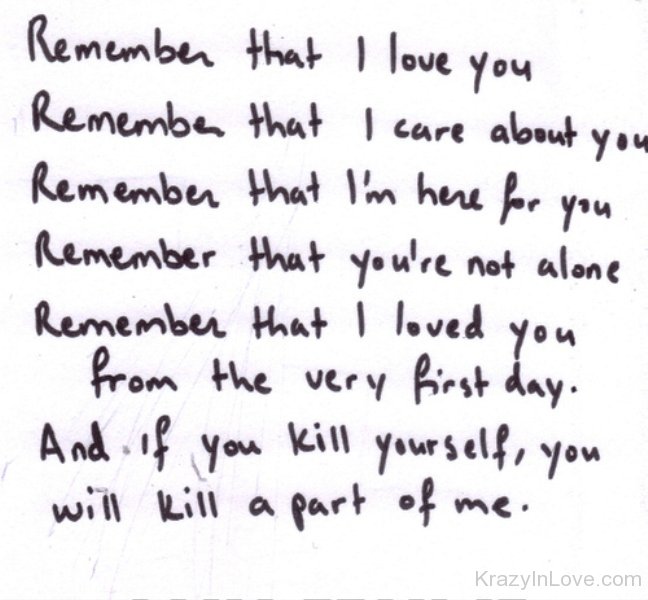 Remember that I love you
Remember that I care about you
Remember that I'm here for you
Remember that you're not alone
Remember that I loved you
from the very first day.
And if you kill yourself, you
will kill a part of me.
KrazyInLove.com